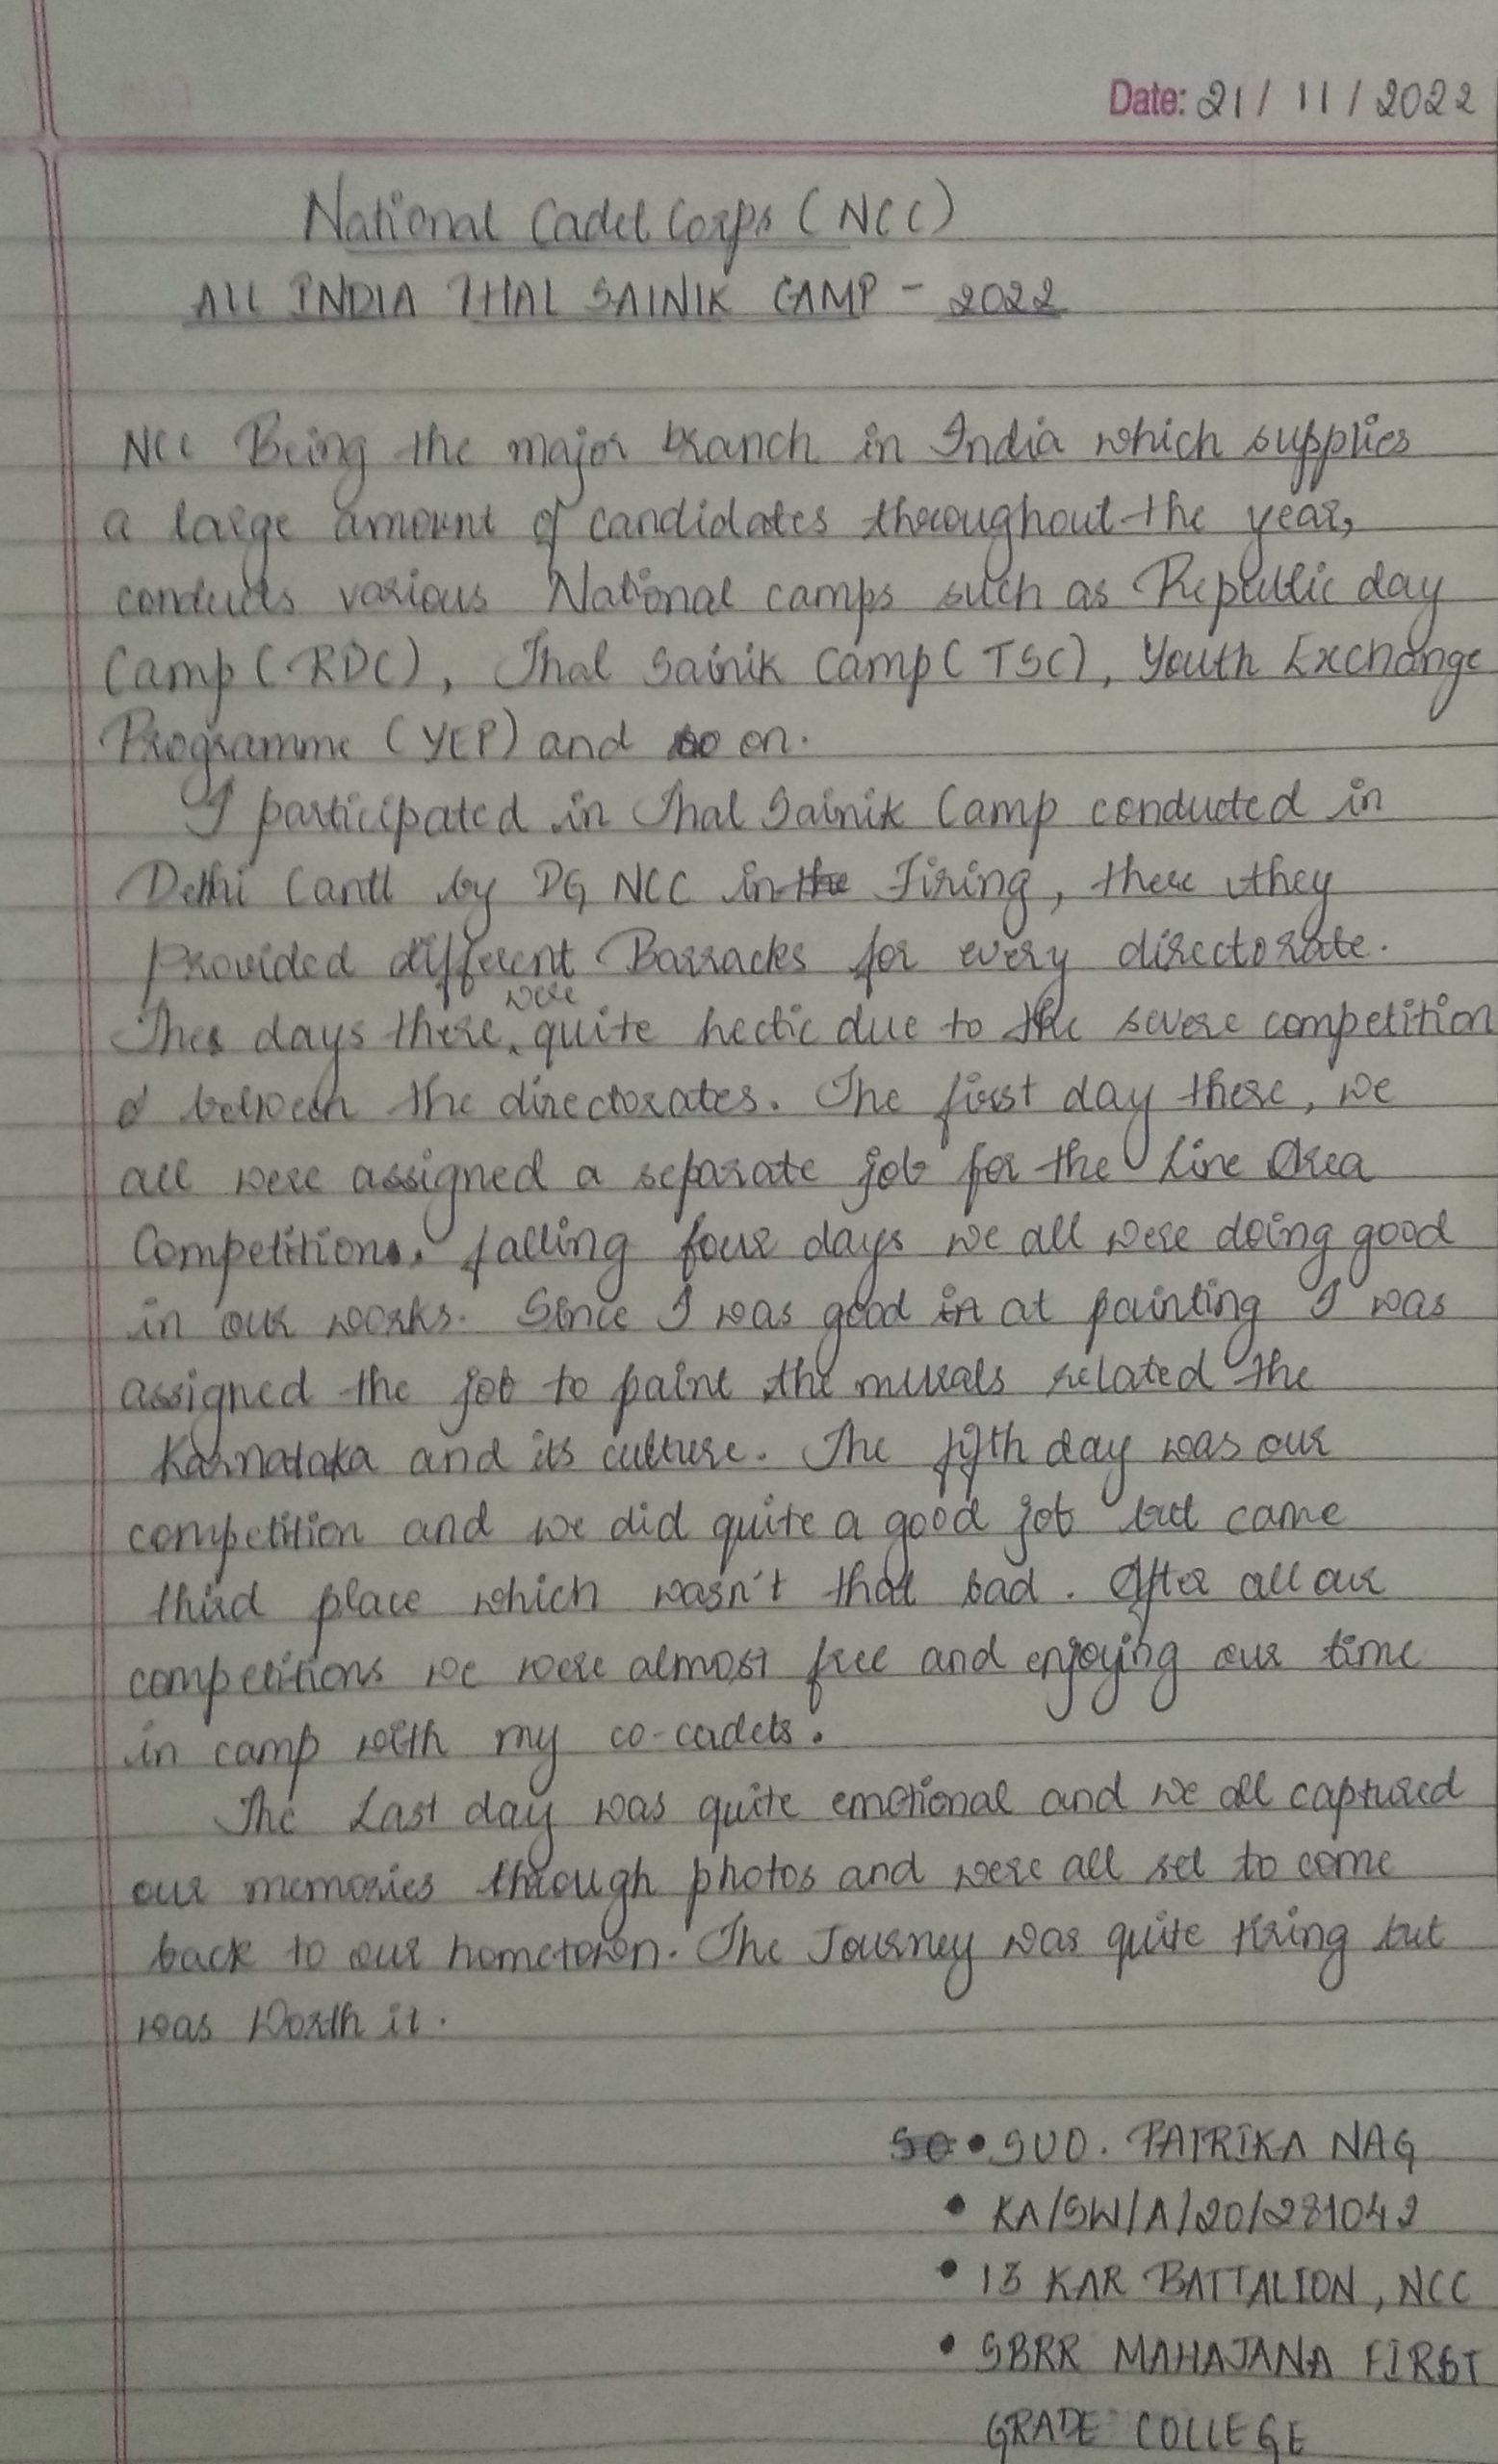 Date: 21 / 11 / 2022
National Cadet Corps (NCC)
ALL INDIA THAL SAINIK CAMP - 2022
NCC Being the major branch in India which supplies
a large amount of candidates throughout the year,
conducts various National camps such as Republic day
Camp (RDC), Thal Sainik Camp (TSC), Youth Exchange
Programme (YEP) and so on.
I participated in Thal Sainik Camp conducted in
Delhi Cantt by DG NCC in the Firing, there they
provided different Barracks for every directorate.
were
The days there quite hectic due to the severe competition
between the directorates. The first day there, we
all were assigned a separate job for the Line Area
Competition. falling four days we all were doing good
in our works. Since I was good in at painting I was
assigned the job to paint the murals related the
Karnataka and its culture. The fifth day was our
competition and we did quite a good job but came
third place which wasn't that bad. After all our
competitions we were almost free and enjoying our time
in camp with my co-cadets.
The Last day was quite emotional and we all captured
our memories through photos and were all set to come
back to our hometown. The Journey was quite tiring but
was Worth it.
• SUO. PATRIKA NAG
• KA/SW/A/20/281042
• 13 KAR BATTALION, NCC
• SBRR MAHAJANA FIRST
GRADE COLLEGE